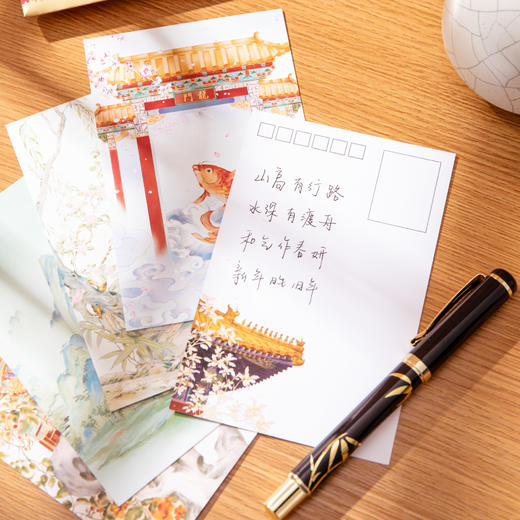 門龍
山高有行路
水深有渡舟
和气作春妍
新年胜旧年